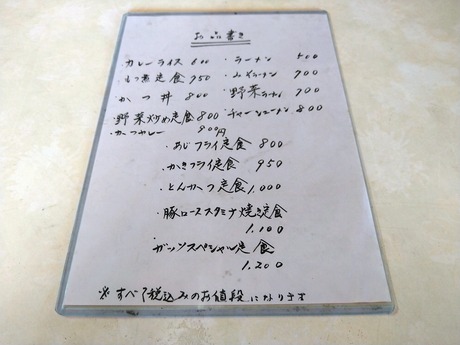 お品書き
カレーライス 600 ・ラーメン 500
・もつ煮定食 950 ・みそラーメン 700
・かつ丼 800 ・野菜ラーメン 700
・野菜炒め定食 800 ・チャーシューメン 800
・かつカレー 800円
・あじフライ定食 800
・かきフライ定食 950
・とんかつ定食 1,000
・豚ローススタミナ焼定食
1,100
ガッツスペシャル定食
1,200
※すべて税込みのお値段になります